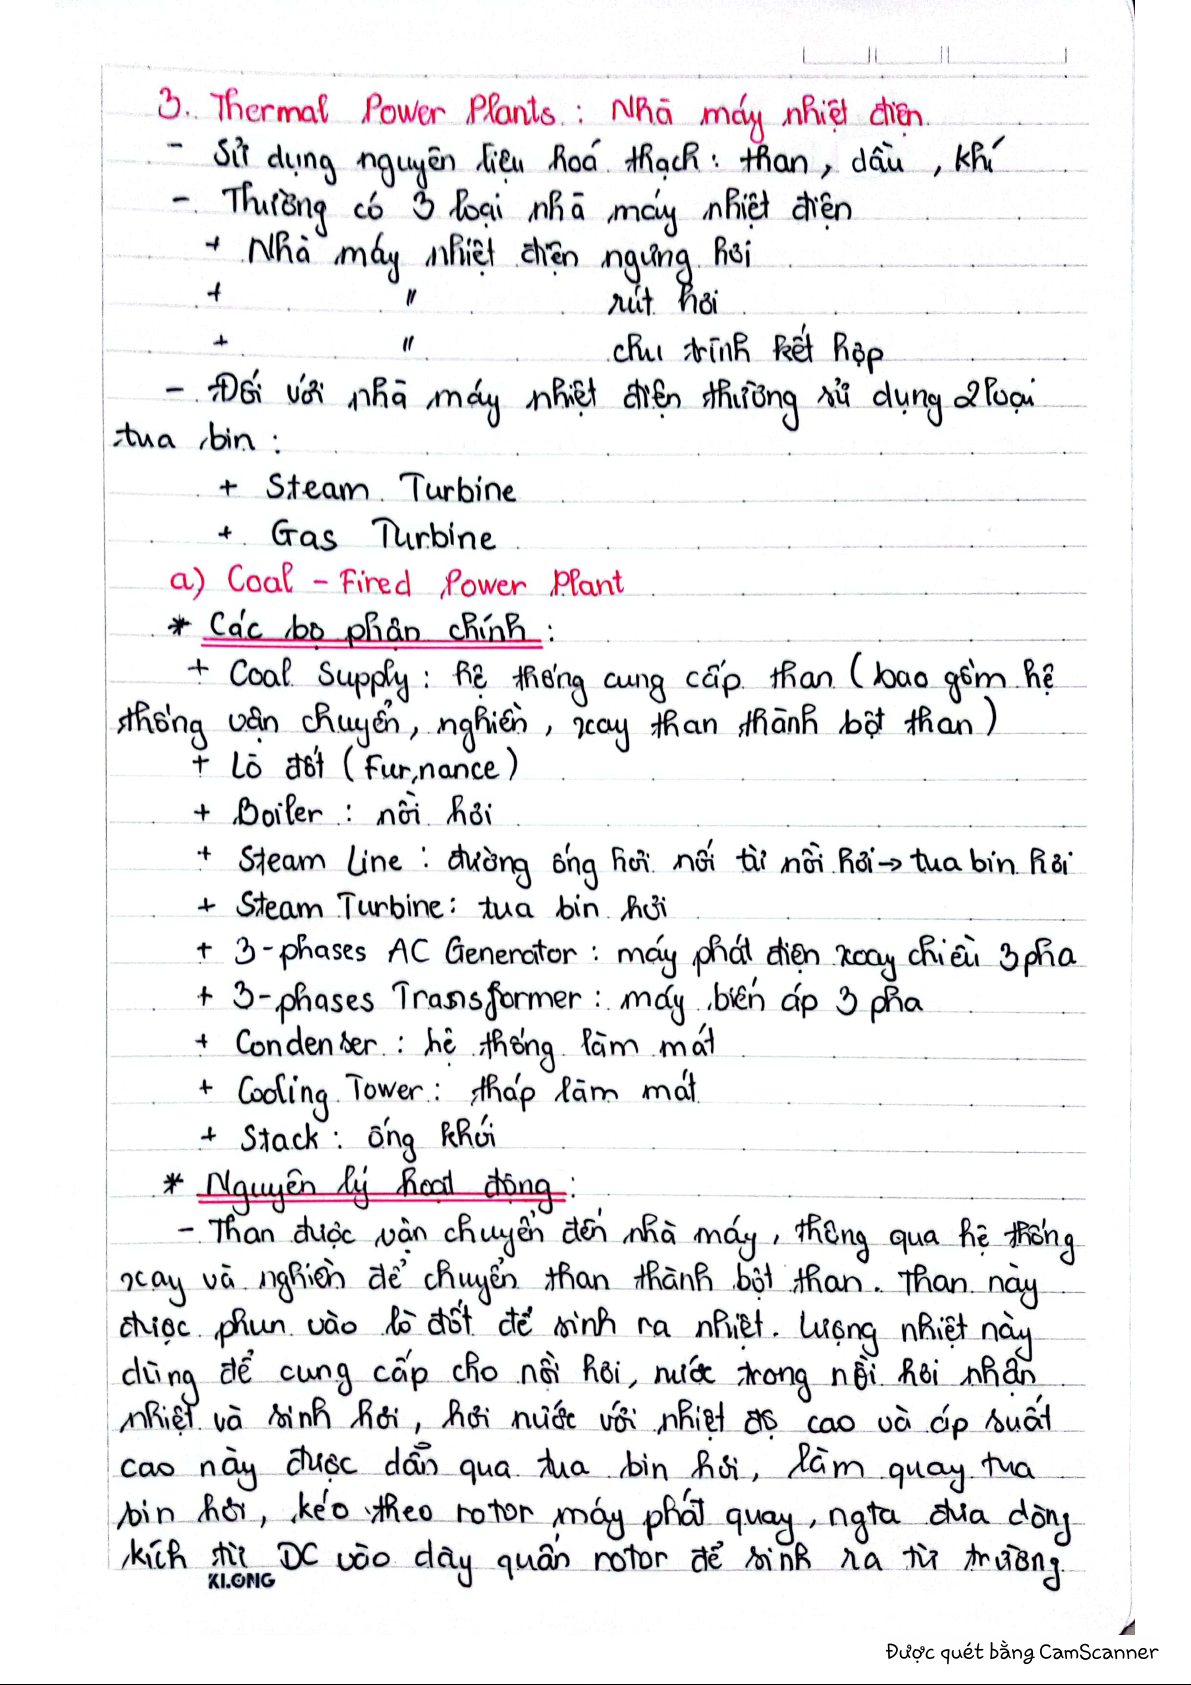 3. Thermal Power Plants : Nhà máy nhiệt điện
- Sử dụng nguyên liệu hoá thạch : than, dầu, khí
- Thường có 3 loại nhà máy nhiệt điện
+ Nhà máy nhiệt điện ngưng hơi
+ " rút hơi
+ " chu trình kết hợp
- Đối với nhà máy nhiệt điện thường sử dụng 2 loại
tua bin :
+ Steam Turbine
+ Gas Turbine
a) Coal - Fired Power Plant
* Các bộ phận chính :
+ Coal Supply : hệ thống cung cấp than (bao gồm hệ
thống vận chuyển, nghiền, xay than thành bột than)
+ Lò đốt (Furnnance)
+ Boiler : nồi hơi
+ Steam Line : đường ống hơi nối từ nồi hơi → tua bin hơi
+ Steam Turbine : tua bin hơi
+ 3-phases AC Generator : máy phát điện xoay chiều 3 pha
+ 3-phases Transformer : máy biến áp 3 pha
+ Condenser : hệ thống làm mát
+ Cooling Tower : tháp làm mát
+ Stack : ống khói
* Nguyên lý hoạt động :
- Than được vận chuyển đến nhà máy, thông qua hệ thống
xay và nghiền để chuyển than thành bột than. Than này
được phun vào lò đốt để sinh ra nhiệt. Lượng nhiệt này
dùng để cung cấp cho nồi hơi, nước trong nồi hơi nhận
nhiệt và sinh hơi, hơi nước với nhiệt độ cao và áp suất
cao này được dẫn qua tua bin hơi, làm quay tua
bin hơi, kéo theo rotor máy phát quay, ngta đưa dòng
kích từ DC vào dây quấn rotor để sinh ra từ trường
KLONG
Được quét bằng CamScanner